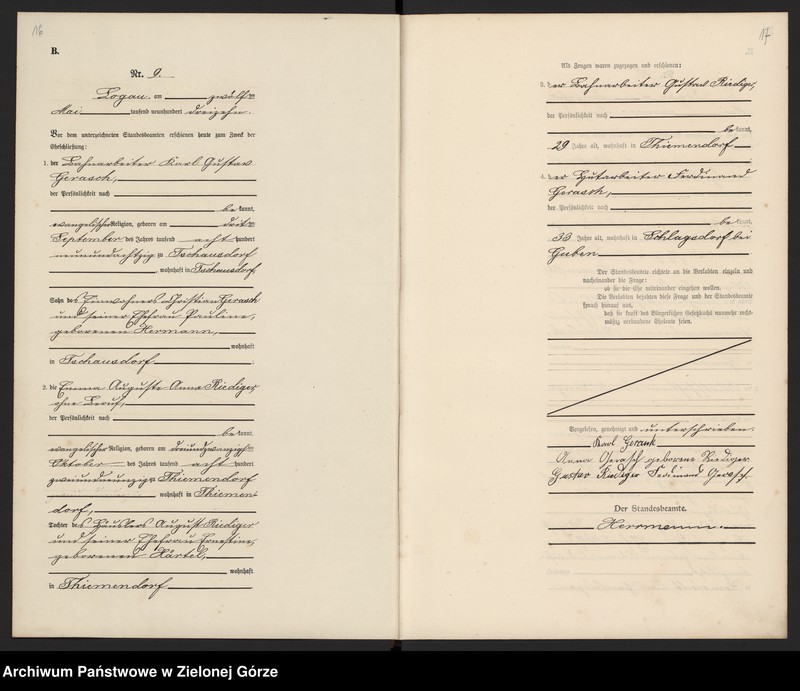 16
B.
Nr. 9.
Logau, am zwölften
Mai tausend neunhundert dreizehn.
Vor dem unterzeichneten Standesbeamten erschienen heute zum Zweck der
Eheschließung:
1. der Bahnarbeiter Karl Gustav
Gerasch,
der Persönlichkeit nach
be kannt,
evangelischer Religion, geboren am
September des Jahres tausend acht hundert
neunundachtzig zu Tschausdorf
, wohnhaft in Tschausdorf
Sohn des Einwohners Christian Gerasch
und seiner Ehefrau Pauline,
geborenen Hermann,
wohnhaft
in Tschausdorf.
2. die Emma Auguste Anna Riediger,
ohne Beruf,
der Persönlichkeit nach
be kannt,
evangelischer Religion, geboren am dreiundzwanzigsten
Oktober des Jahres tausend acht hundert
zweiundneunzig zu Thiemendorf
wohnhaft in Thiemen-
dorf,
Tochter des Häuslers August Riediger
und seiner Ehefrau Ernestine,
geborenen Härtel,
wohnhaft
in Thiemendorf
17
Als Zeugen waren zugezogen und erschienen:
3. der Bahnarbeiter Gustav Riediger,
der Persönlichkeit nach
be kannt,
29 Jahre alt, wohnhaft in Thiemendorf
4. der Hutarbeiter Ferdinand
Gerasch,
der Persönlichkeit nach
be kannt,
33 Jahre alt, wohnhaft in Schlagsdorf bei
Guben
Der Standesbeamte richtete an die Verlobten einzeln und
nacheinander die Frage:
ob sie die Ehe miteinander eingehen wollen.
Die Verlobten bejahten diese Frage und der Standesbeamte
sprach hierauf aus,
daß sie kraft des Bürgerlichen Gesetzbuchs nunmehr recht-
mäßig verbundene Eheleute seien.
Vorgelesen, genehmigt und unterschrieben.
Karl Gerasch
Anna Gerasch geborene Riediger
Gustav Riediger Ferdinand Gerasch.
Der Standesbeamte.
Herrmann.
Archiwum Państwowe w Zielonej Górze